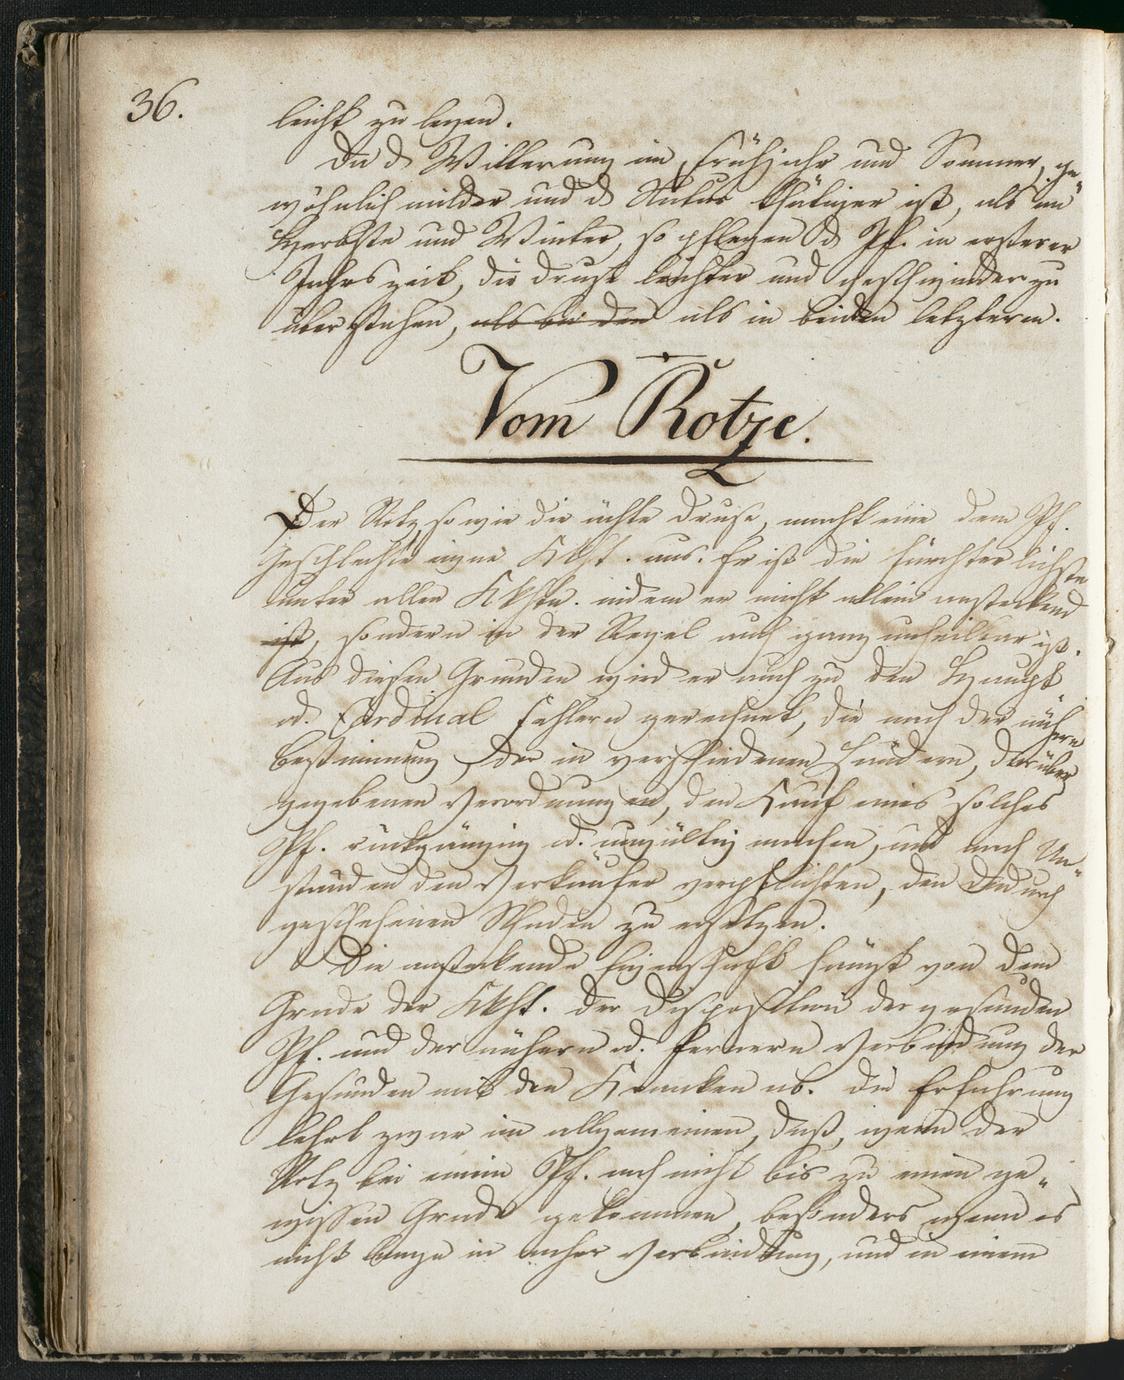 36.
leicht zu legen.
Da d. Witterung im Frühjahr und Sommer, ge-
wöhnlich milder und d. Natur thätiger ist, als im
Herbste und Winter, so pflegen d. Pf. in ersterer
Jahrszeit, die Druse leichter und geschwinder zu
überstehen, als bei den als in beiden letzteren.
Vom Rotze.
Der Rotz, so wie die ächte Druse, macht eine dem Pf.
Geschlechte eigne Kkht. aus. Er ist die fürchterlichste
unter allen Kkhtn. indem er nicht allein ansteckend
ist, sondern in der Regel auch ganz unheilbar ist.
Aus diesen Grunden wird er auch zu den Haupt
od. Cardinal Fehlern gerechnet, die nach der nähern
Bestimmung der in verschiedenen Ländern, darüber
gegebenen Verordnungen, den Kauf eines solches
Pf. rückgängig od. ungültig machen, und nach Um-
ständen den Verkäufer verpflichten, den dadurch
geschehenen Schaden zu ersetzen.
Die ansteckende Eigenschaft hängt von dem
Grade der Kkht. der Disposition der gesunden
Pf. und der nähern od. fernern Verbindung der
Gesunden mit den Kranken ab. Die Erfahrung
lehrt zwar im allgemeinen, daß, wenn der
Rotz bei einem Pf. noch nicht bis zu einen ge-
wissen Grade gekommen, besonders wenn es
nicht lange in naher Verbindung, und in einem